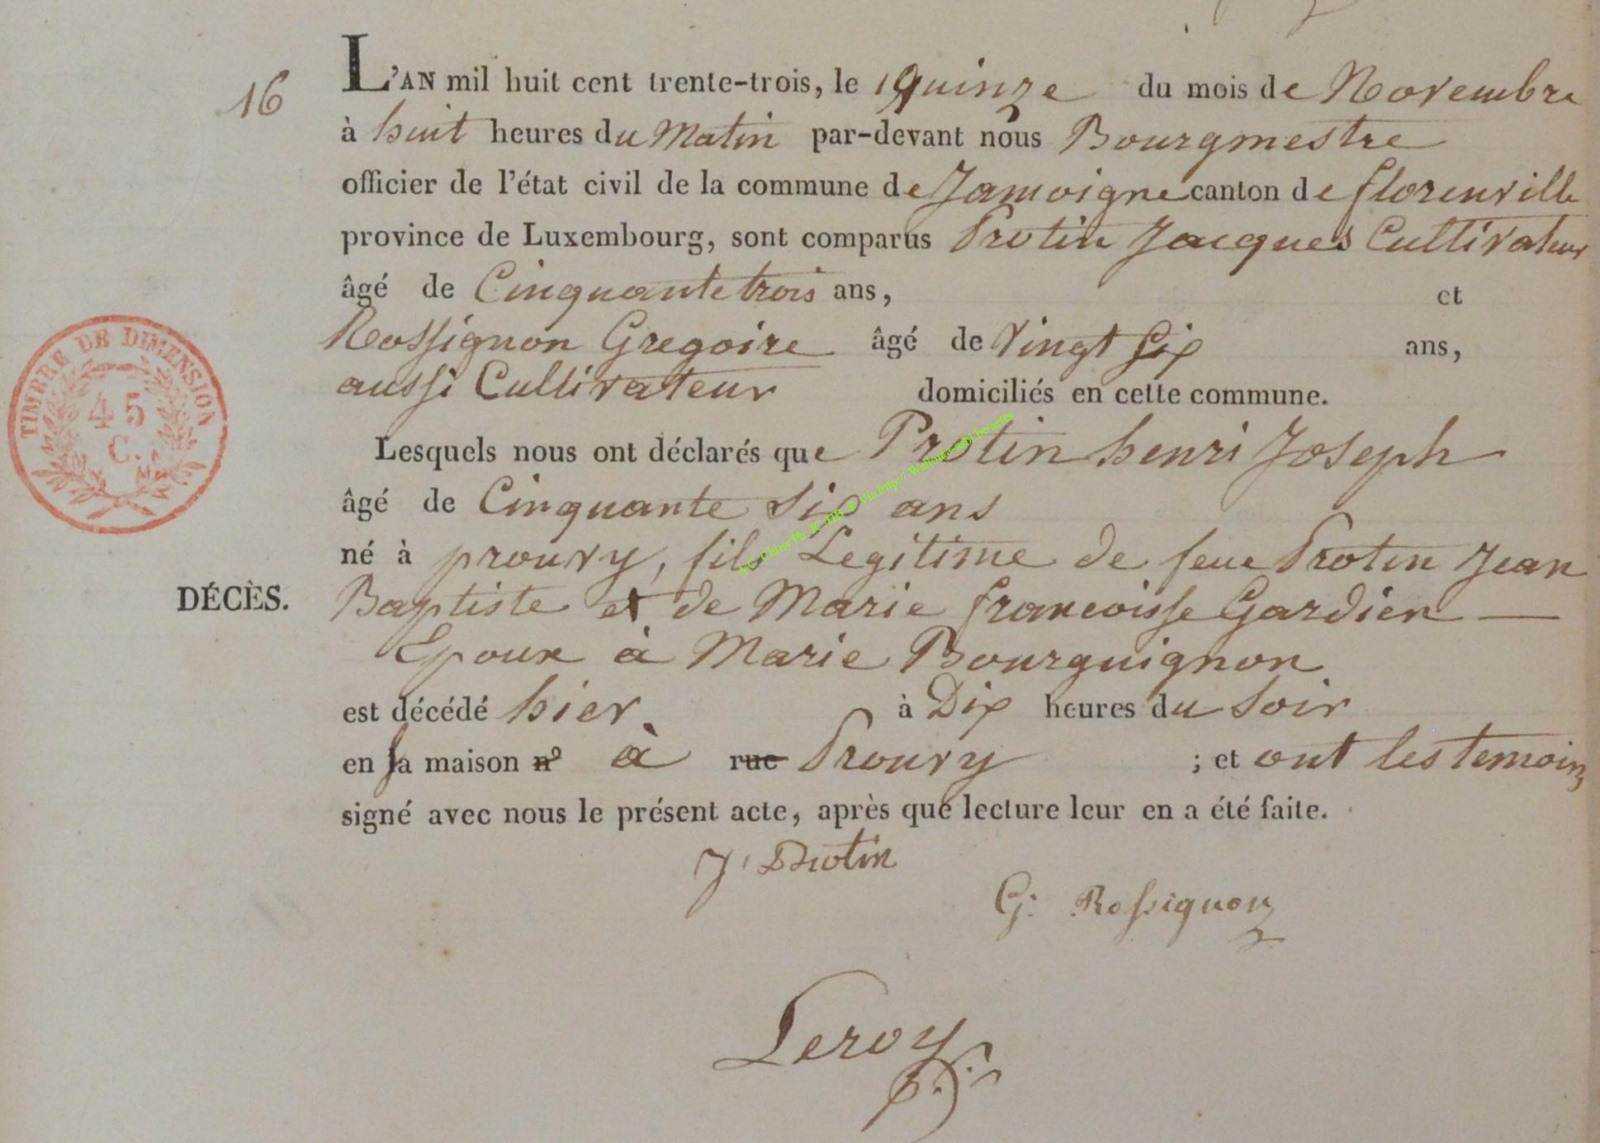 16
L'AN mil huit cent trente-trois, le quinze du mois de Novembre
à huit heures du Matin par-devant nous Bourgmestre
officier de l'état civil de la commune de Jamoigne canton de florenville
province de Luxembourg, sont comparus Protin Jacques Cultivateur
âgé de Cinquante trois ans, et
Rossignon Gregoire âgé de Vingt Six ans,
aussi Cultivateur domiciliés en cette commune.
Lesquels nous ont déclarés que Protin henri Joseph
âgé de Cinquante Six ans
né à prouvy, fils Legitime de feue Protin Jean
DÉCÈS. Baptiste et de Marie francoisse Gardien
Epoux à Marie Bourguignon
est décédé hier. à Dix heures du Soir
en sa maison n° à rue Prouvy ; et ont les temoins
signé avec nous le présent acte, après que lecture leur en a été faite.
J. Protin
G. Rossignon
Leroy
TIMBRE DE DIMENSION
45
C.